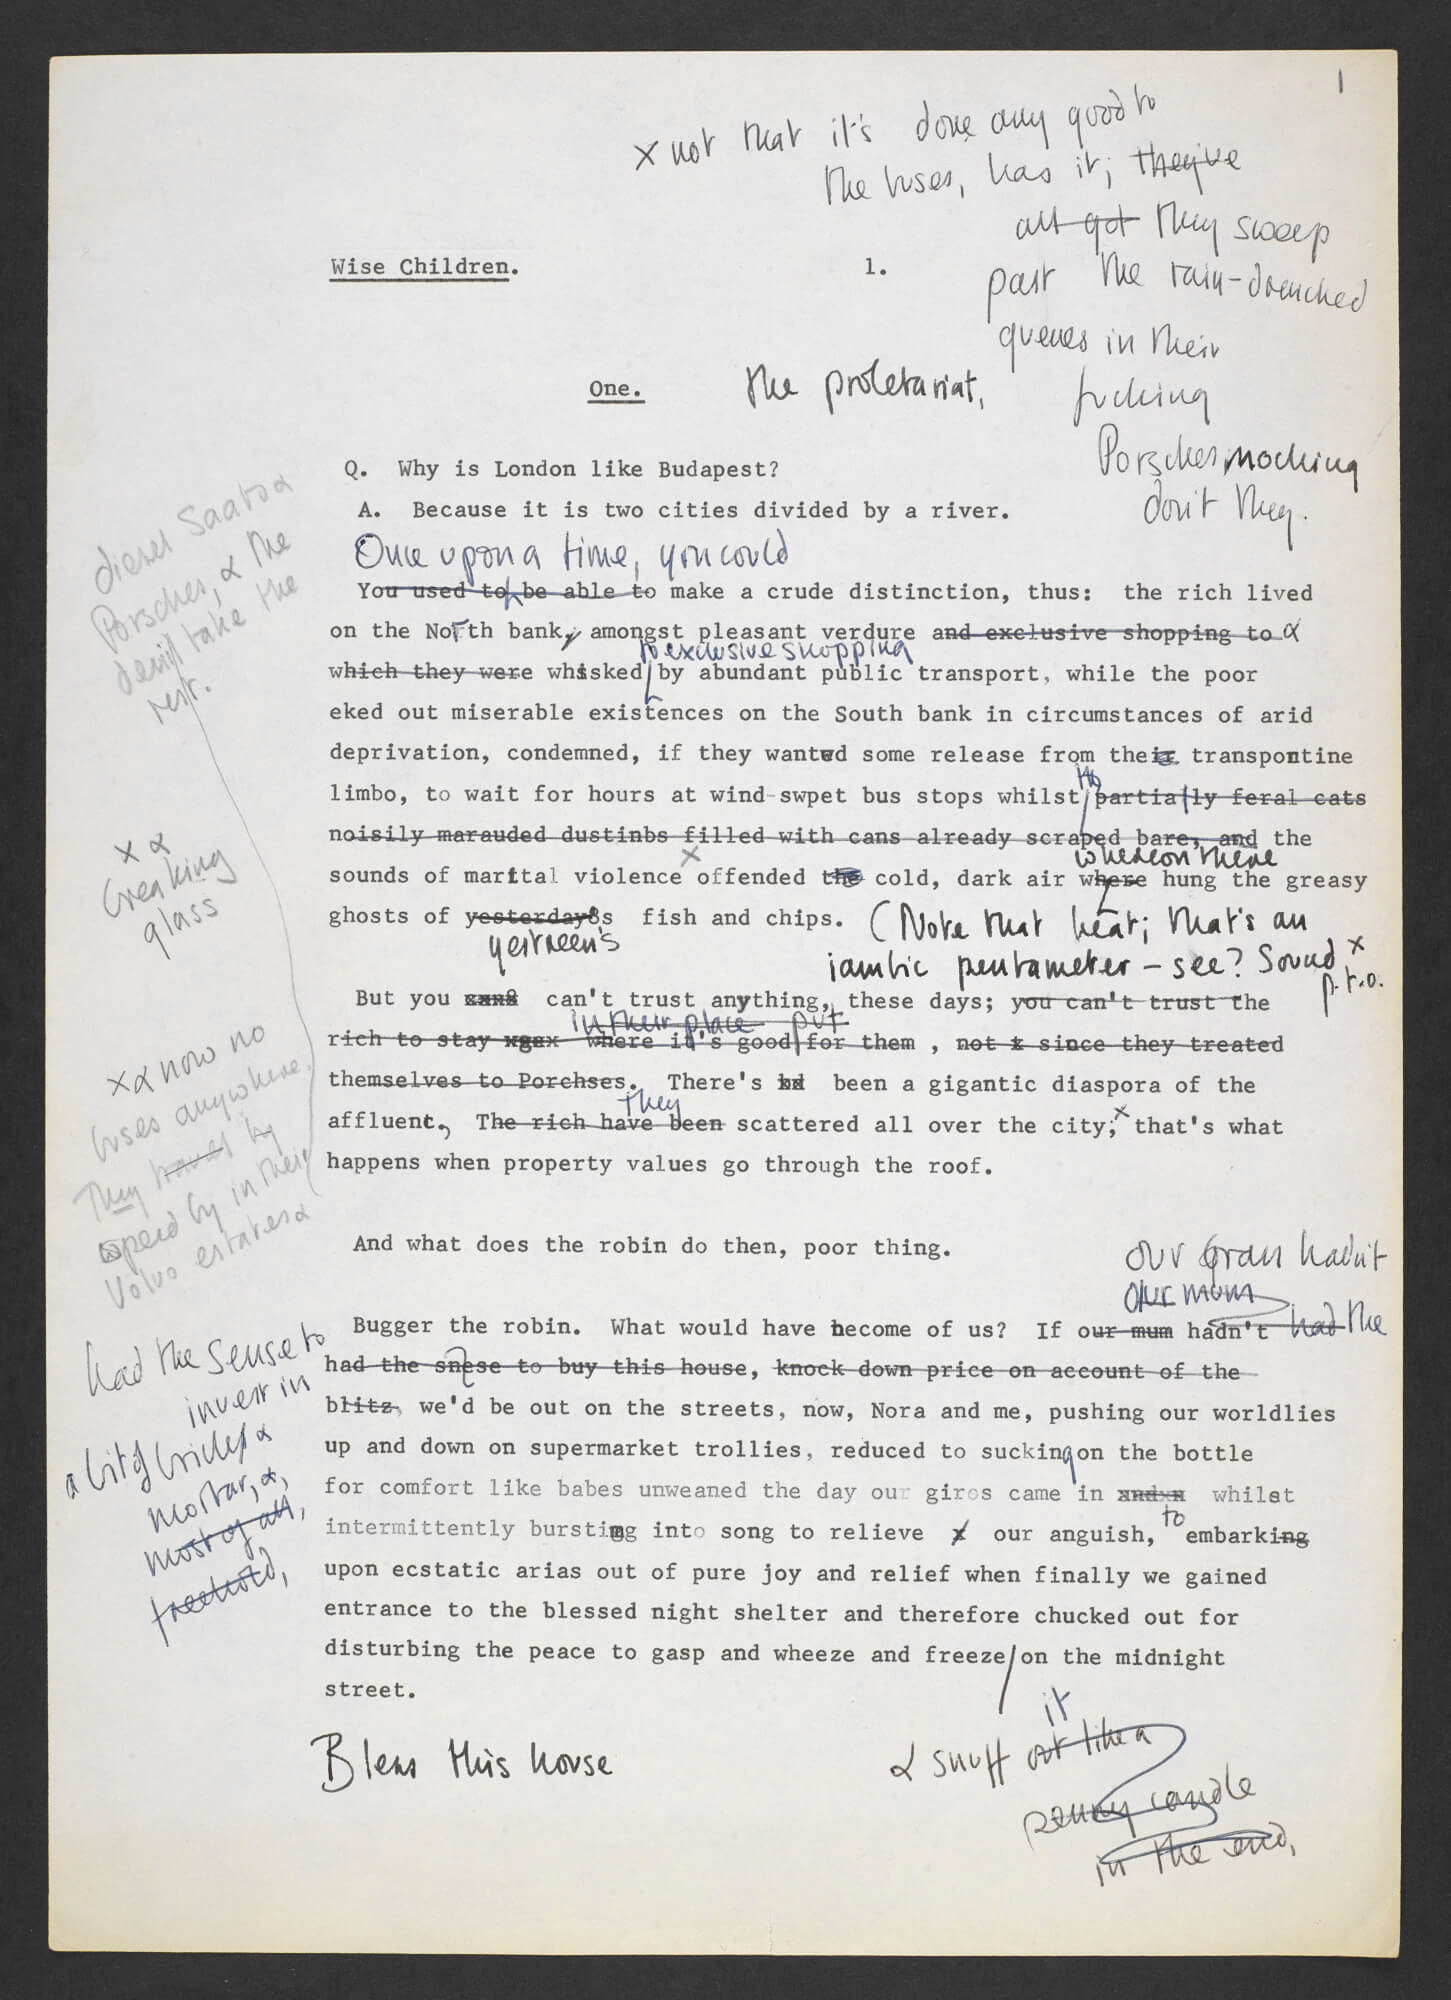 1
x not that it's done any good to
the buses, has it; they've
all got they sweep
past the rain-drenched
queues in their
fucking
Porsches, mocking
don't they.
Wise Children. 1.
One. the proletariat,
Q. Why is London like Budapest?
A. Because it is two cities divided by a river.
Once upon a time, you could
You used to be able to make a crude distinction, thus: the rich lived
on the North bank, amongst pleasant verdure and exclusive shopping to &
to exclusive shopping
which they were whisked by abundant public transport, while the poor
eked out miserable existences on the South bank in circumstances of arid
deprivation, condemned, if they wanted some release from their transpontine
limbo, to wait for hours at wind-swpet bus stops whilst partially feral cats
noisily marauded dustinbs filled with cans already scraped bare, and the
whereon there
sounds of marital violence x offended the cold, dark air where hung the greasy
ghosts of yesterday's fish and chips. (Note that beat; that's an
yestreen's
iambic pentameter - see? Sound x
p.t.o.
But you can't trust anything, these days; you can't trust the
in their place put
rich to stay where it's good for them , not x since they treated
themselves to Porchses. There's been a gigantic diaspora of the
they
affluent., The rich have been scattered all over the city; x that's what
happens when property values go through the roof.
And what does the robin do then, poor thing.
our Gran hadn't
our mum
Bugger the robin. What would have become of us? If our mum hadn't had the
had the snese to buy this house, knock down price on account of the
blitz, we'd be out on the streets, now, Nora and me, pushing our worldlies
up and down on supermarket trollies, reduced to sucking on the bottle
for comfort like babes unweaned the day our giros came in whilst
intermittently bursting into song to relieve x our anguish, to embarking
upon ecstatic arias out of pure joy and relief when finally we gained
entrance to the blessed night shelter and therefore chucked out for
disturbing the peace to gasp and wheeze and freeze on the midnight
street.
Bless this house
it
& snuff out like a
penny candle
in the end,
diesel Saabs &
Porsches, & the
devil take the
rest.
x &
breaking
glass
x & now no
buses anywhere.
They travel by
speed by in their
Volvo estates &
had the sense to
invest in
a bit of bricks &
mortar, &,
most of all,
freehold,